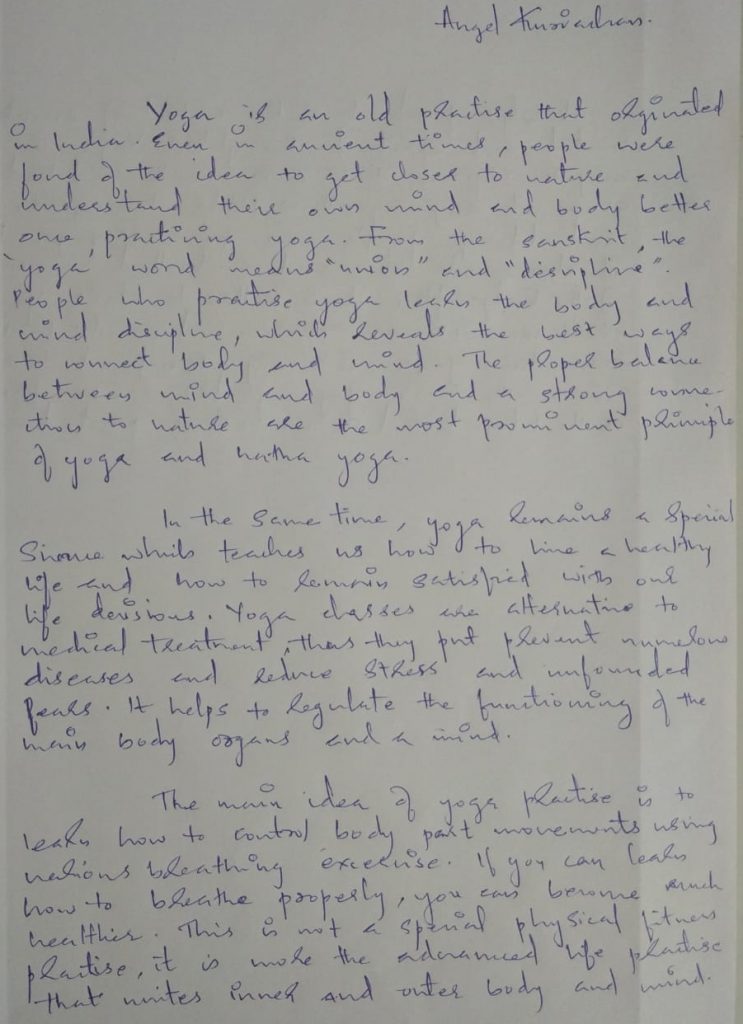 Angel
Yoga is an old practise that originated
in India. Even in ancient times, people were
fond of the idea to get closer to nature and
understand their own mind and body better
once, practicing yoga. From the sanskrit, the
'yoga' word means "union" and "discipline".
People who practise yoga learn the body and
mind discipline, which reveals the best ways
to connect body and mind. The proper balance
between mind and body and a strong conne-
ction to nature are the most prominent principle
of yoga and hatha yoga.
In the same time, yoga remains a special
which teaches us how to live a healthy
life and how to remain satisfied with our
life decisions. Yoga classes are alternative to
medical treatment, thus they put prevent numerous
diseases and reduce stress and unfounded
fears. It helps to regulate the functioning of the
main body organs and a mind.
The main idea of yoga practise is to
learn how to control body part movements using
various breathing excercise. If you can learn
how to breathe properly, you can become much
healthier. This is not a special physical fitness
practise, it is more the advanced life practise
that unites inner and outer body and mind.